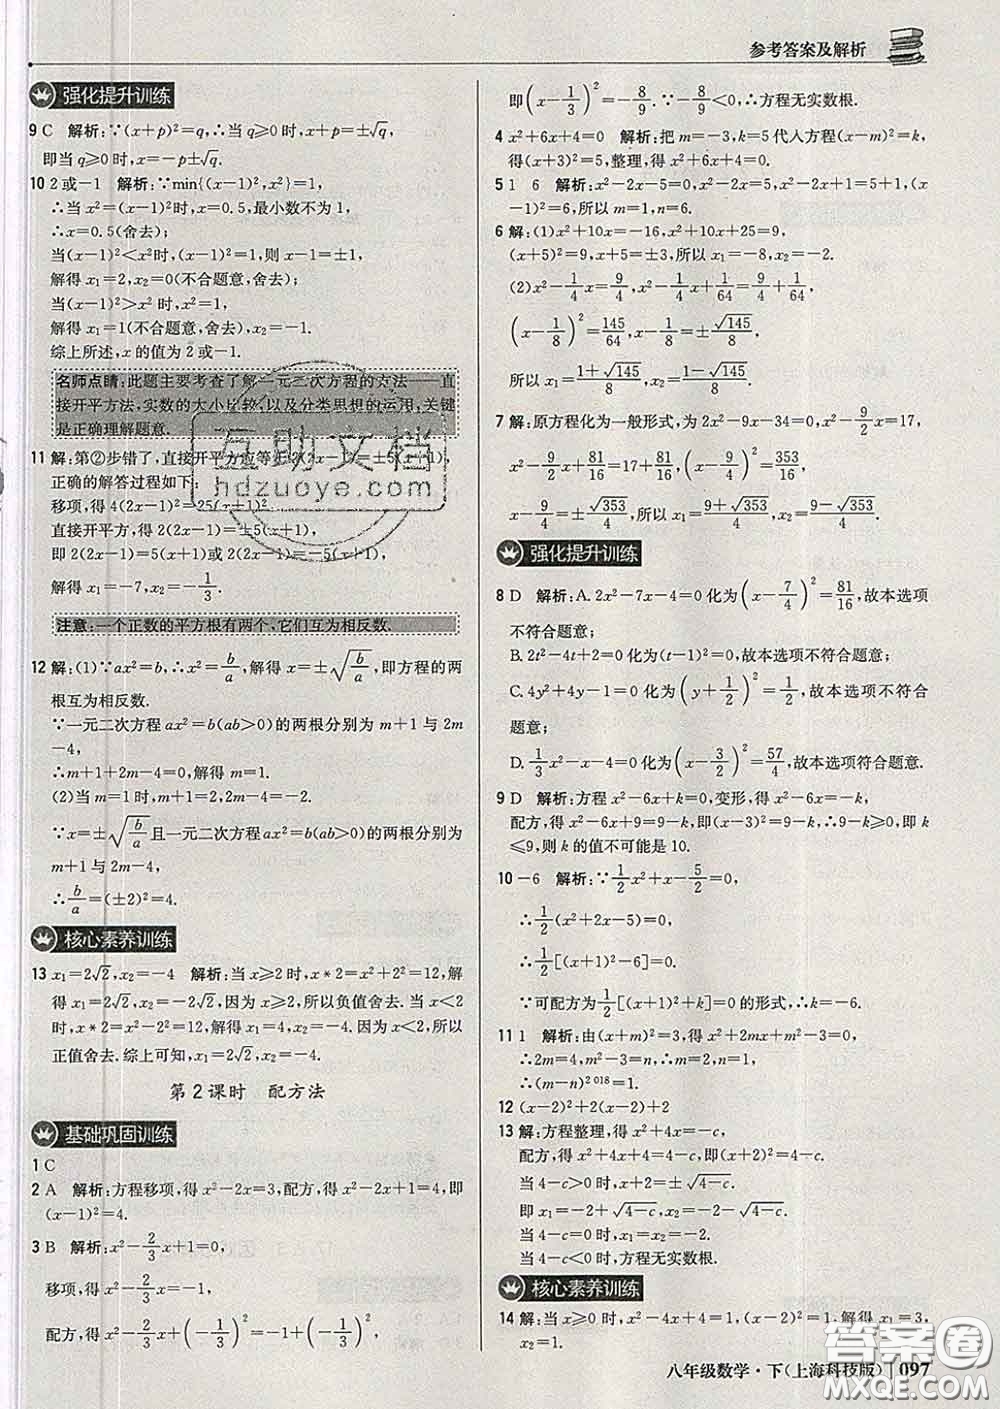 参考答案及解析
强化提升训练
9 C 解析:∵(x+p)²=q,∴当 q⩾0 时,x+p=±√q,
即当 q⩾0 时,x=-p±√q.
10 2或-1 解析:∵min{(x-1)²,x²}=1,
∴当 x²=(x-1)²时,x=0.5,最小数不为 1,
∴x=0.5(舍去);
当(x-1)²<x²时,(x-1)²=1,则 x-1=±1,
解得 x₁=2,x₂=0(不合题意,舍去);
当(x-1)²>x² 时,x²=1,
解得 x₁=1(不合题意,舍去),x₂=-1.
综上所述,x 的值为 2 或-1.
名师点睛:此题主要考查了解一元二次方程的方法——直
接开平方法,实数的大小比较,以及分类思想的运用,关键
是正确理解题意.
11 解:第②步错了,直接开平方应等于2(2x-1)=±5(x+1),
正确的解答过程如下:
移项,得 4(2x-1)²=25(x+1)²,
直接开平方,得 2(2x-1)=±5(x+1),
即 2(2x-1)=5(x+1)或 2(2x-1)=-5(x+1),
解得 x₁=-7,x₂=-1/3.
注意:一个正数的平方根有两个,它们互为相反数.
12 解:(1)∵ax²=b,∴x²=b/a,解得 x=±√(b/a),即方程的两
根互为相反数.
∵一元二次方程 ax²=b(ab>0)的两根分别为 m+1 与 2m
-4,
∴m+1+2m-4=0,解得 m=1.
(2)当 m=1 时,m+1=2,2m-4=-2.
∵x=±√(b/a)且一元二次方程 ax²=b(ab>0)的两根分别为
m+1 与 2m-4,
∴b/a=(±2)²=4.
核心素养训练
13 x₁=2√2,x₂=-4 解析:当 x⩾2 时,x*2=x²+2²=12,解
得 x₁=2√2,x₂=-2√2,因为 x⩾2,所以负值舍去.当 x<2
时,x*2=x²-2²=12,解得 x₁=4,x₂=-4.因为 x<2,所以
正值舍去.综上可知,x₁=2√2,x₂=-4.
第 2 课时 配方法
基础巩固训练
1 C
2 A 解析:方程移项,得 x²-2x=3,配方,得 x²-2x+1=4,即
(x-1)²=4.
3 B 解析:x²-2/3x+1=0,
移项,得 x²-2/3x=-1,
配方,得 x²-2/3x+(-1/3)²=-1+(-1/3)²,
即(x-1/3)²=-8/9.∵-8/9<0,∴方程无实数根.
4 x²+6x+4=0 解析:把 m=-3,k=5 代入方程(x-m)²=k,
得(x+3)²=5,整理,得 x²+6x+4=0.
5 1 6 解析:x²-2x-5=0,x²-2x=5,x²-2x+1=5+1,(x
-1)²=6,所以 m=1,n=6.
6 解:(1)x²+10x=-16,x²+10x+25=9,
(x+5)²=9,x+5=±3,所以 x₁=-8,x₂=-2.
(2)x²-1/4x=9/4,x²-1/4x+1/64=9/4+1/64,
(x-1/8)²=145/64,x-1/8=±√145/8,
所以 x₁=(1+√145)/8,x₂=(1-√145)/8.
7 解:原方程化为一般形式,为 2x²-9x-34=0,x²-9/2x=17,
x²-9/2x+81/16=17+81/16,(x-9/4)²=353/16,
x-9/4=±√353/4,所以 x₁=(9+√353)/4,x₂=(9-√353)/4.
强化提升训练
8 D 解析:A.2x²-7x-4=0 化为(x-7/4)²=81/16,故本选项
不符合题意;
B.2t²-4t+2=0 化为(t-1)²=0,故本选项不符合题意;
C.4y²+4y-1=0 化为(y+1/2)²=1/2,故本选项不符合
题意;
D.1/3x²-x-4=0 化为(x-3/2)²=57/4,故本选项符合题意.
9 D 解析:方程 x²-6x+k=0,变形,得 x²-6x=-k,
配方,得 x²-6x+9=9-k,即(x-3)²=9-k,∴9-k⩾0,即 k
⩽9,则 k 的值不可能是 10.
10 -6 解析:∵1/2x²+x-5/2=0,
∴1/2(x²+2x-5)=0,
∴1/2[(x+1)²-6]=0.
∵可配方为1/2[(x+1)²+k]=0 的形式,∴k=-6.
11 1 解析:由(x+m)²=3,得 x²+2mx+m²-3=0,
∴2m=4,m²-3=n,∴m=2,n=1,
∴(m-n)²⁰¹⁸=1.
12 (x-2)²+(x-2)(x+2)+2
13 解:方程整理,得 x²+4x=-c,
配方,得 x²+4x+4=4-c,即(x+2)²=4-c,
当 4-c>0 时,x+2=±√(4-c),
即 x₁=-2+√(4-c),x₂=-2-√(4-c).
当 4-c=0 时,x₁=x₂=-2.
当 4-c<0 时,方程无实数根.
核心素养训练
14 解:当 x⩾0 时,x²-4x+4=1,(x-2)²=1,解得 x₁=3,
x₂=1.
八年级数学·下(上海科技版) 097
互助文档
hdzuoye.com
答案圈
MXQE.COM